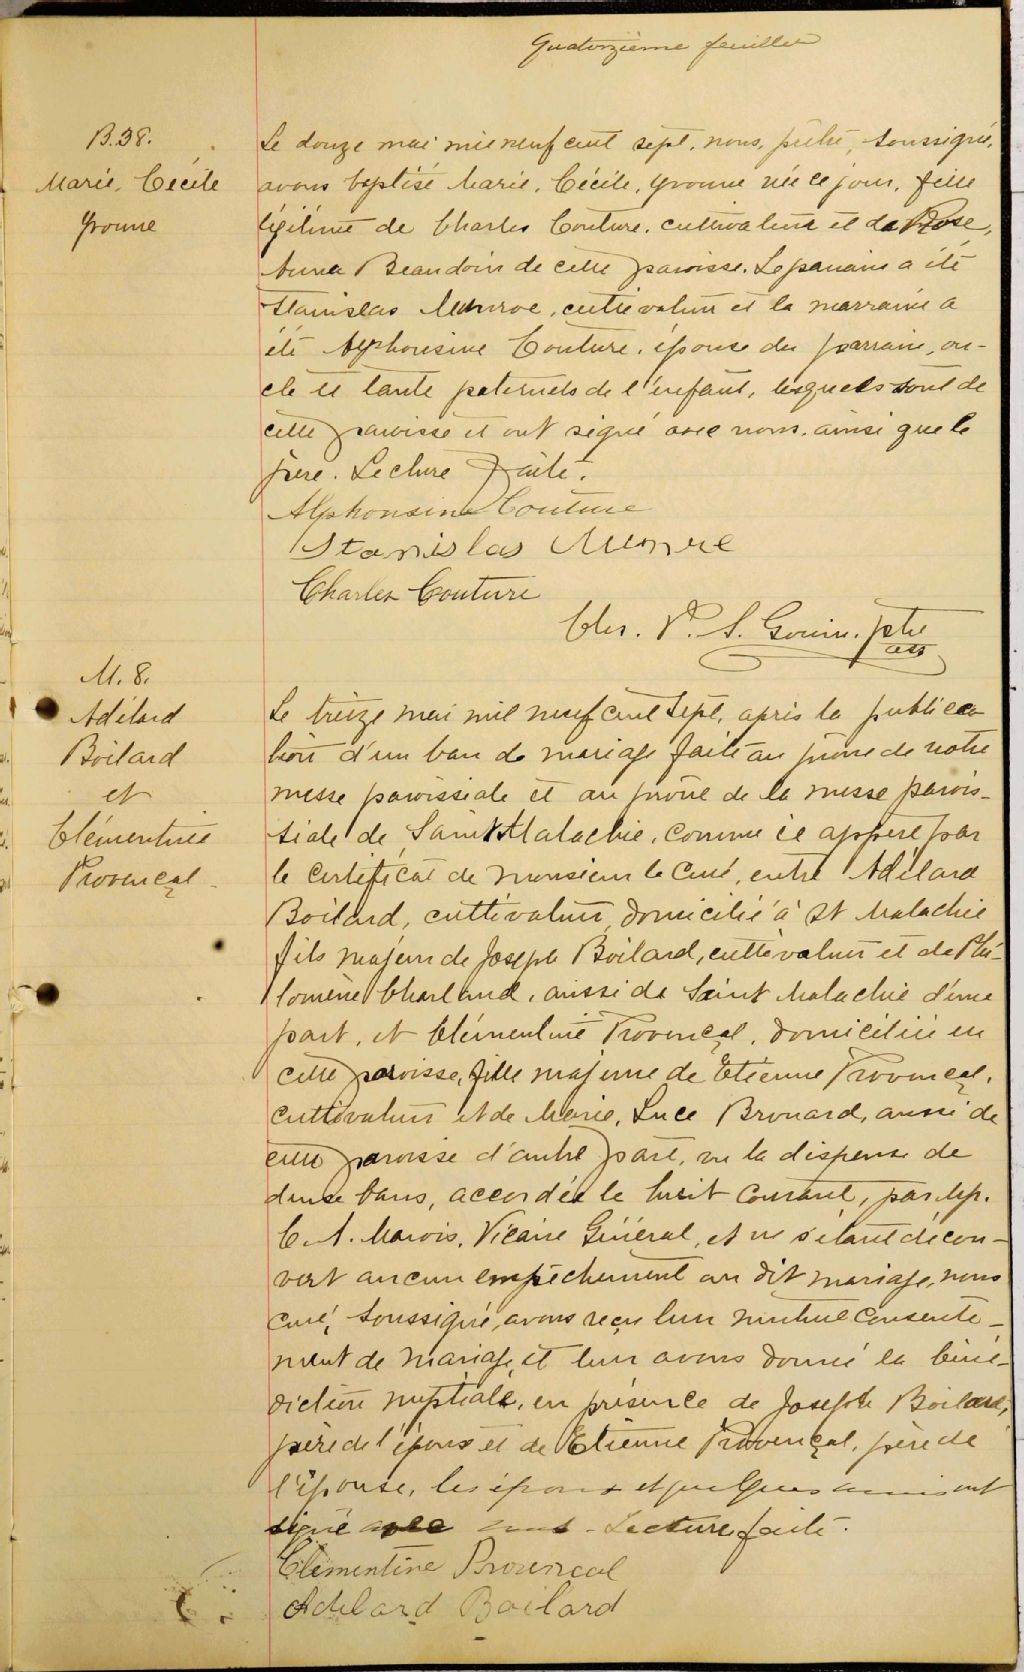 Quatorzième feuillet
B.38.
Marie, Cécile
Yvonne
Le douze mai mil neuf cent sept, nous, prêtre, soussigné,
avons baptisé Marie, Cécile, Yvonne née ce jour, fille
légitime de Charles Couture, cultivateur et de Rose,
Anna Beaudoin de cette paroisse. Le parrain a été
Stanislas Munroe, cultivateur et la marraine a
été Alphonsine Couture, épouse du parrain, on-
cle et tante paternels de l'enfant, lesquels sont de
cette paroisse et ont signé avec nous, ainsi que le
père. Lecture faite.
Alphonsine Couture
Stanislas Munroe
Charles Couture
Chs. V. S. Gouin. ptre
ass
M. 8.
Adélard
Boilard
et
Clémentine
Provençal
Le treize mai mil neuf cent sept, après la publica
tion d'un ban de mariage faite au prône de notre
messe paroissiale et au prône de la messe parois-
siale de Saint Malachie, comme il appert par
le certificat de monsieur le curé, entre Adélard
Boilard, cultivateur, domicilié à St Malachie
fils majeur de Joseph Boilard, cultivateur et de Phi-
lomène Charland, aussi de Saint Malachie d'une
part, et Clémentine Provençal, domiciliée en
cette paroisse, fille majeure de Etienne Provençal,
cultivateur et de Marie, Luce Brouard, aussi de
cette paroisse d'autre part, vu la dispense de
deux bans, accordée le huit courant, par Mgr.
C. A. Marois, Vicaire Général, et ne s'étant décou-
vert aucun empêchement au dit mariage, nous
curé, soussigné, avons reçu leur mutuel consente-
ment de mariage, et leur avons donné la béné-
diction nuptiale, en présence de Joseph Boilard,
père de l'époux et de Etienne Provençal, père de
l'épouse, les époux et quelques amis ont
signé avec nous. Lecture faite.
Clémentine Provencal
Adelard Boilard